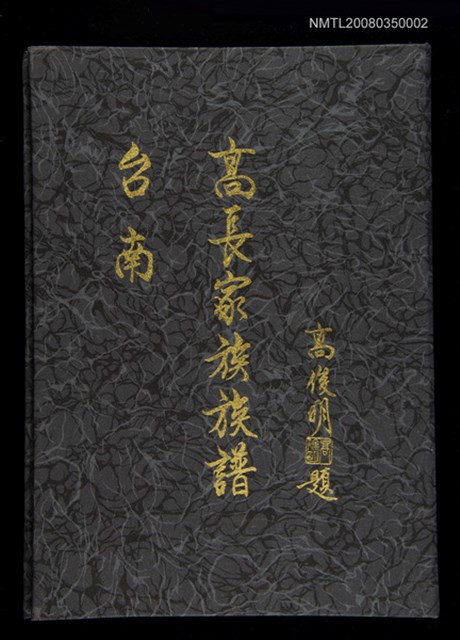 NMTL20080350002
高俊明題
髙長家族族譜
台南